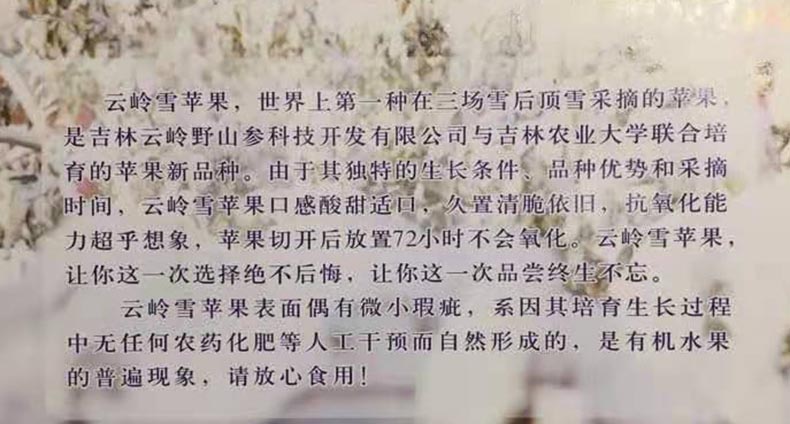 云岭雪苹果，世界上第一种在三场雪后顶雪采摘的苹果，
是吉林云岭野山参科技开发有限公司与吉林农业大学联合培
育的苹果新品种。由于其独特的生长条件、品种优势和采摘
时间，云岭雪苹果口感酸甜适口，久置清脆依旧，抗氧化能
力超乎想象，苹果切开后放置72小时不会氧化。云岭雪苹果，
让你这一次选择绝不后悔，让你这一次品尝终生不忘。
云岭雪苹果表面偶有微小瑕疵，系因其培育生长过程
中无任何农药化肥等人工干预而自然形成的，是有机水果
的普遍现象，请放心食用！